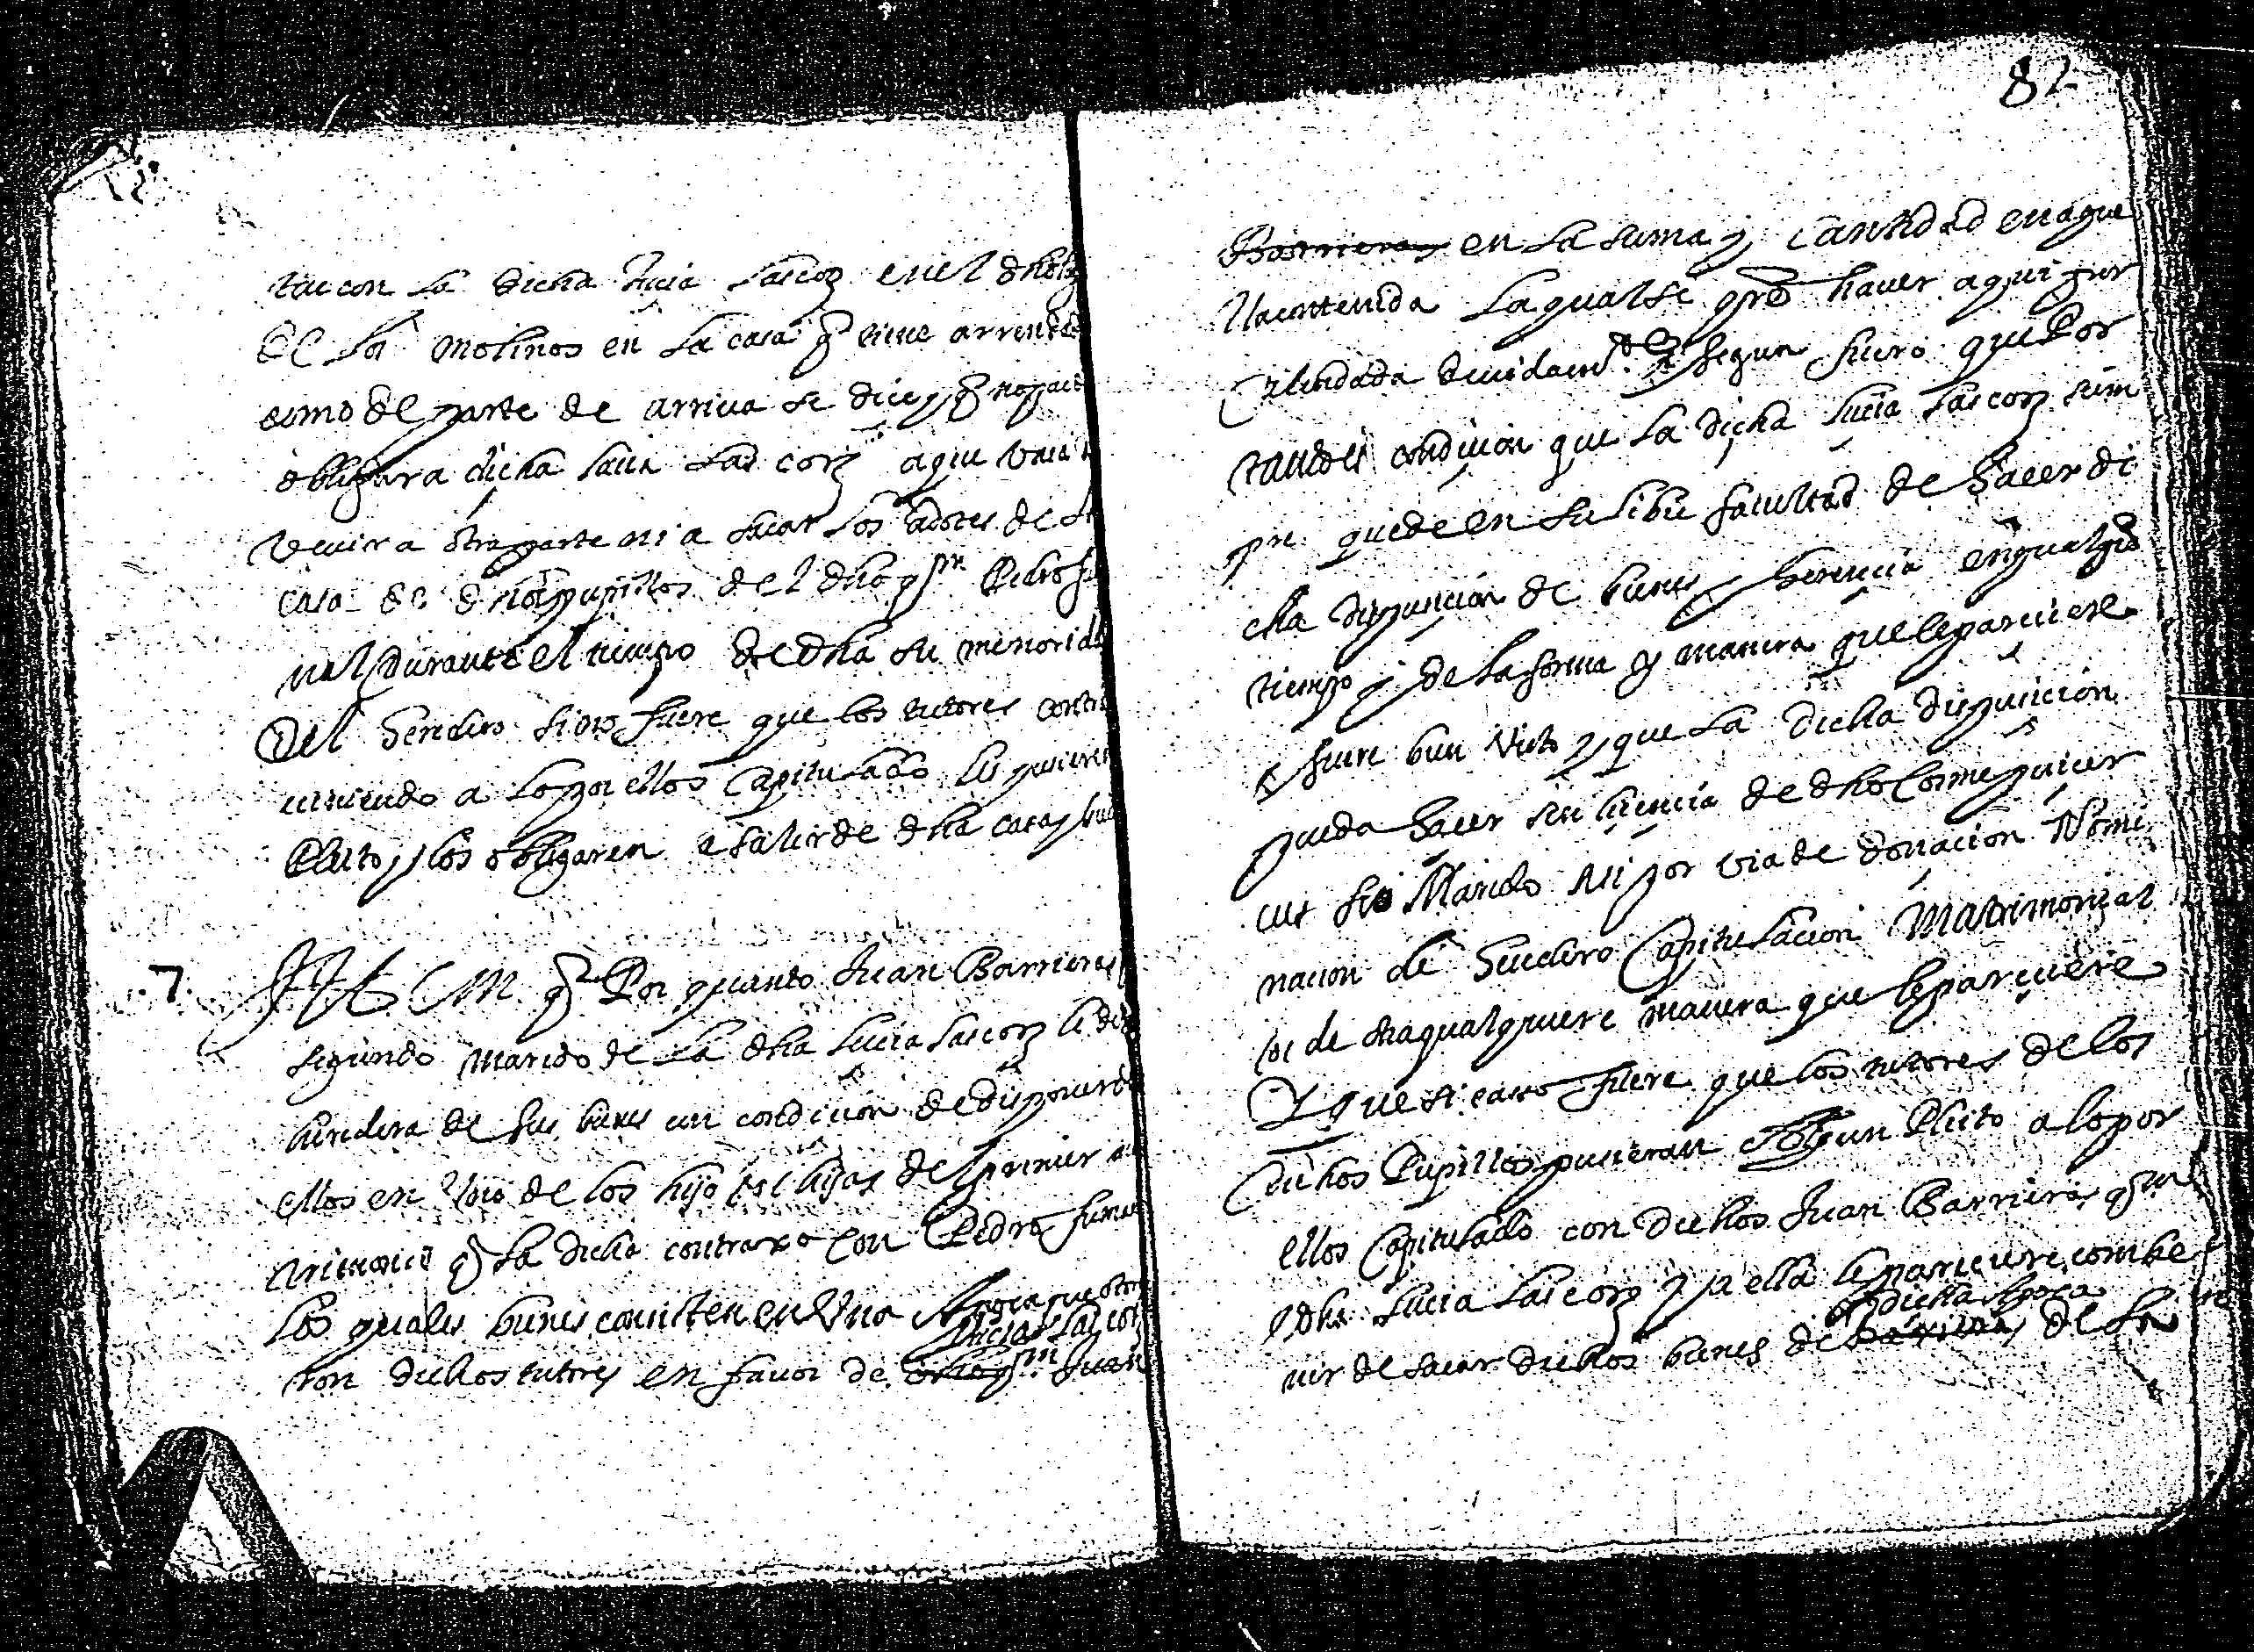 tar con la dicha Lucia Lascorz en el dho lu
de los Molinos en la casa q tiene arrendad
como de parte de arriua se dice y q no pued
obligar a dicha Lucia Lascorz a que vaia a
viuir a otra parte ni a sacar los adotes de la
casa de dhos pupillos del dho qm Pedro
nal durante el tiempo de dha su menoridad
del heredero sino fuere que los tutores contra
uiniendo a lo por ellos Capitulado les pusieren
Pleito y los obligaren a salir de dha casa y
.7. ITEM q Por quanto Juan Barrieras
segundo marido de la dha Lucia Lascorz le dexo
heredera de sus bienes con condicion de disponer de
ellos en uno de los hijos o hijas del primer ma
trimonio q la dicha contraxo con Pedro
los quales bienes consisten en Una Apoca que otorga
Lucia Lascorz
ron dichos tutores en fauor de dicho qm Juan
82
Barrieras en la suma y cantidad en aque
lla contenida la qual se qre hauer aqui por
calendada deuidamte y segun fuero que Por
tanto es condicion que la dicha Lucia Lascorz siem
pre quede en su libre facultad de hacer di
cha disposicion de bienes y herencia en qualqre
tiempo y de la forma y manera que le pareciere
y fuere bien visto y que la dicha disposicion
pueda hacer sin licencia de dho Cosme
su Marido ni por via de donacion Nomi
nacion de heredero Capitulacion Matrimonial
o de otra qualquiere manera que le pareciere
Y que si caso fuere que los tutores de los
dichos Pupillos pusieran algun Pleito a lo por
ellos Capitulado con dichos Juan Barrieras qm
y dha Lucia Lascorz y a ella le pareciere combe
dicha Apoca
nir de sacar dichos bienes de de su